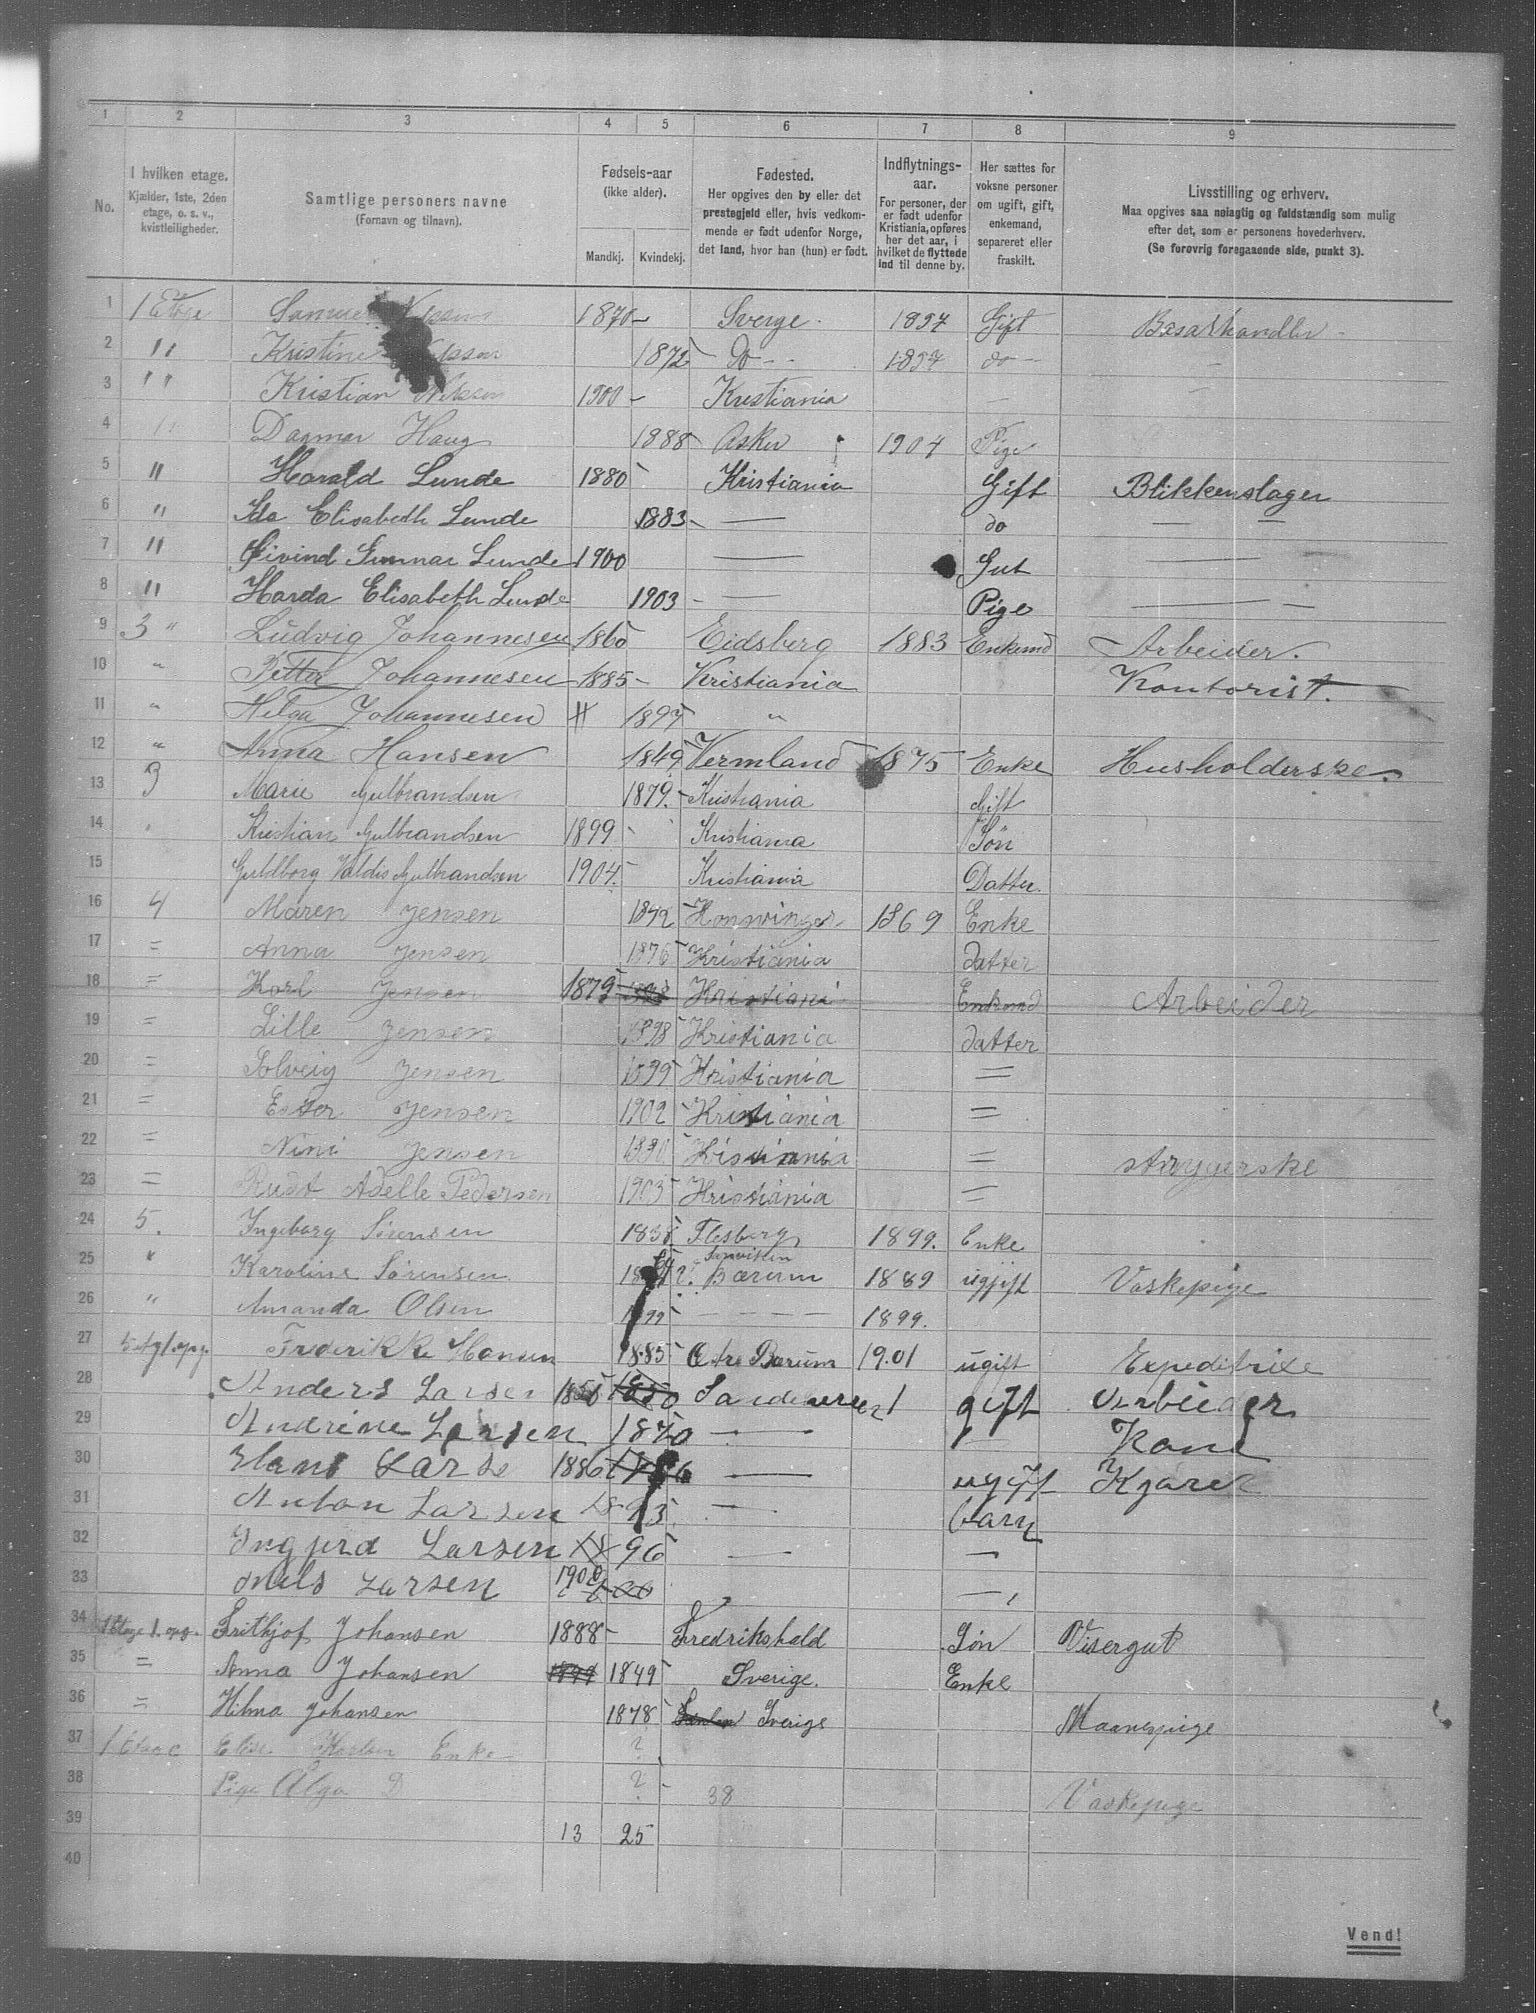 1 2 3 4 5 6 7 8 9
No.
I hvilken etage.
Kjælder, 1ste, 2den
etage, o. s. v.,
kvistleiligheder.
Samtlige personers navne
(Fornavn og tilnavn).
Fødsels-aar
(ikke alder).
Mandkj. Kvindekj.
Fødested.
Her opgives den by eller det
prestegjeld eller, hvis vedkom-
mende er født udenfor Norge,
det land, hvor han (hun) er født.
Indflytnings-
aar.
For personer, der
er født udenfor
Kristiania, opføres
her det aar, i
hvilket de flyttede
ind til denne by.
Her sættes for
voksne personer
om ugift, gift,
enkemand,
separeret eller
fraskilt.
Livsstilling og erhverv.
Maa opgives saa nøiagtig og fuldstændig som mulig
efter det, som er personens hovederhverv.
(Se forøvrig foregaaende side, punkt 3).
1 1 Etage 1870 - Sverge 1897 Gift Basarhandler -
2 " Kristine 1872 do - 1897 do -
3 " Kristian Nilssen 1900 - Kristiania -
4 " Dagmar Haug 1888 Asker 1904 Pige
5 " Harald Lunde 1880 Kristiania Gift Blikkenslager
6 " Ida Elisabeth Lunde 1883 - — do — —
7 " Øivind Gunnar Lunde 1900 — Gut —
8 " Harda Elisabeth Lunde 1903 - — Pige — —
9 3 " Ludvig Johannesen 1860 Eidsberg 1883 Enkemd Arbeider.
10 " Petter Johannesen 1885 - Kristiania Kontorist.
11 " Helga Johannesen 1897 "
12 " Anna Hansen 1849 Vermland 1875 Enke Husholderske.
13 3 Marie Gulbrandsen 1879. - Kristiania Gift
14 Kristian Gulbrandsen 1899 - Kristiania Søn
15 Guldborg Valdis Gulbrandsen 1904. Kristiania Datter.
16 4 Maren Jensen 1842 1869 Enke
17 = Anna Jensen 1876 Kristiania datter
18 = Karl Jensen 1875 Kristiani Enkemd Arbeider
19 = Lille Jensen 1898 Kristiania datter
20 = Solveig Jensen 1899 Kristiania =
21 = Ester Jensen 1902 Kristiania =
22 = Nini Jensen 1890 Kristiania = strygerske
23 = Rust Adelle Pedersen 1903 Kristiania =
24 5. Ingeborg Sørensen 1838 Flesberg 1899. Enke
25 " Karoline Sørensen Sanviken Bærum 1889 ugift Vaskepige
26 " Amanda Olsen 1899 — — — 1899.
27 5 etg 1 opg. Frederikke Hansen 1885 Østre Bærum 1901 ugift Expeditrixe
28 Anders Larsen 1850 gift Arbeider
29 Andrine Larsen 1870 — — Kone
30 Hans Larse 1886 — ugift
31 Anton Larsen 1893 — barn
32 Ingjerd Larsen 96 — —
33 Nils Larsen 1900 —
34 1 Etage 1. opg. Frithjof Johansen 1888 - Fredrikshald Søn Visergut
35 = Anna Johansen 1849 Sverige. Enke
36 = Hilma Johansen 1878 Sverige
37 1 Etage Elise Karlsen Enke ?
38 Pige Olga D ? 38 Vaskepige
39 13 25
40
Vend!